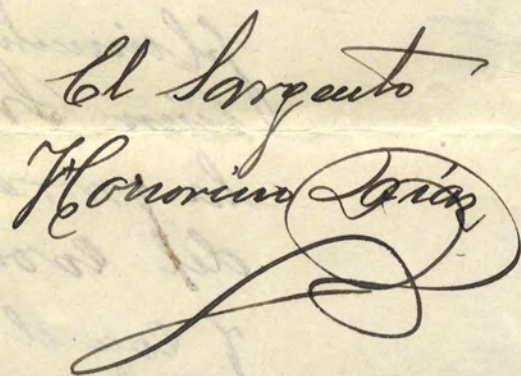 El Sargento
Honorino Díaz